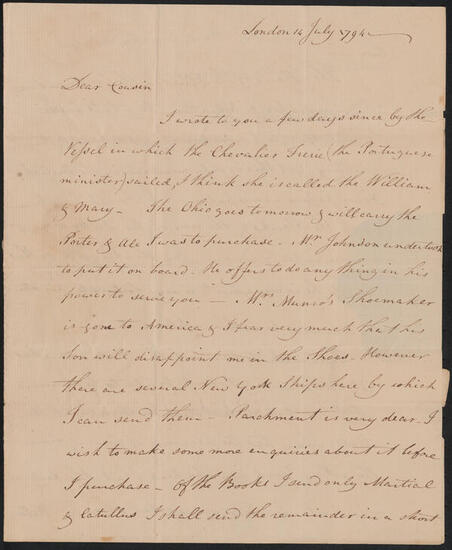 London 14 July 1794
Dear Cousin
I wrote to you a few days since by the
Vessel in which the Chevalier Freire (the Portuguese
minister) sailed, I think she is called the William
& Mary – The Ohio goes tomorrow & will carry the
Porter & Ale I was to purchase – Mr Johnson undertook
to put it on board. He offers to do any thing in his
power to serve you – Mrs Munro's Shoemaker
is gone to America & I fear very much that his
Son will disappoint me in the Shoes – However
there are several New York Ships here by which
I can send them – Parchment is very dear – I
wish to make some more enquiries about it before
I purchase – Of the Books I send only Martial
& Catullus I shall send the remainder in a short